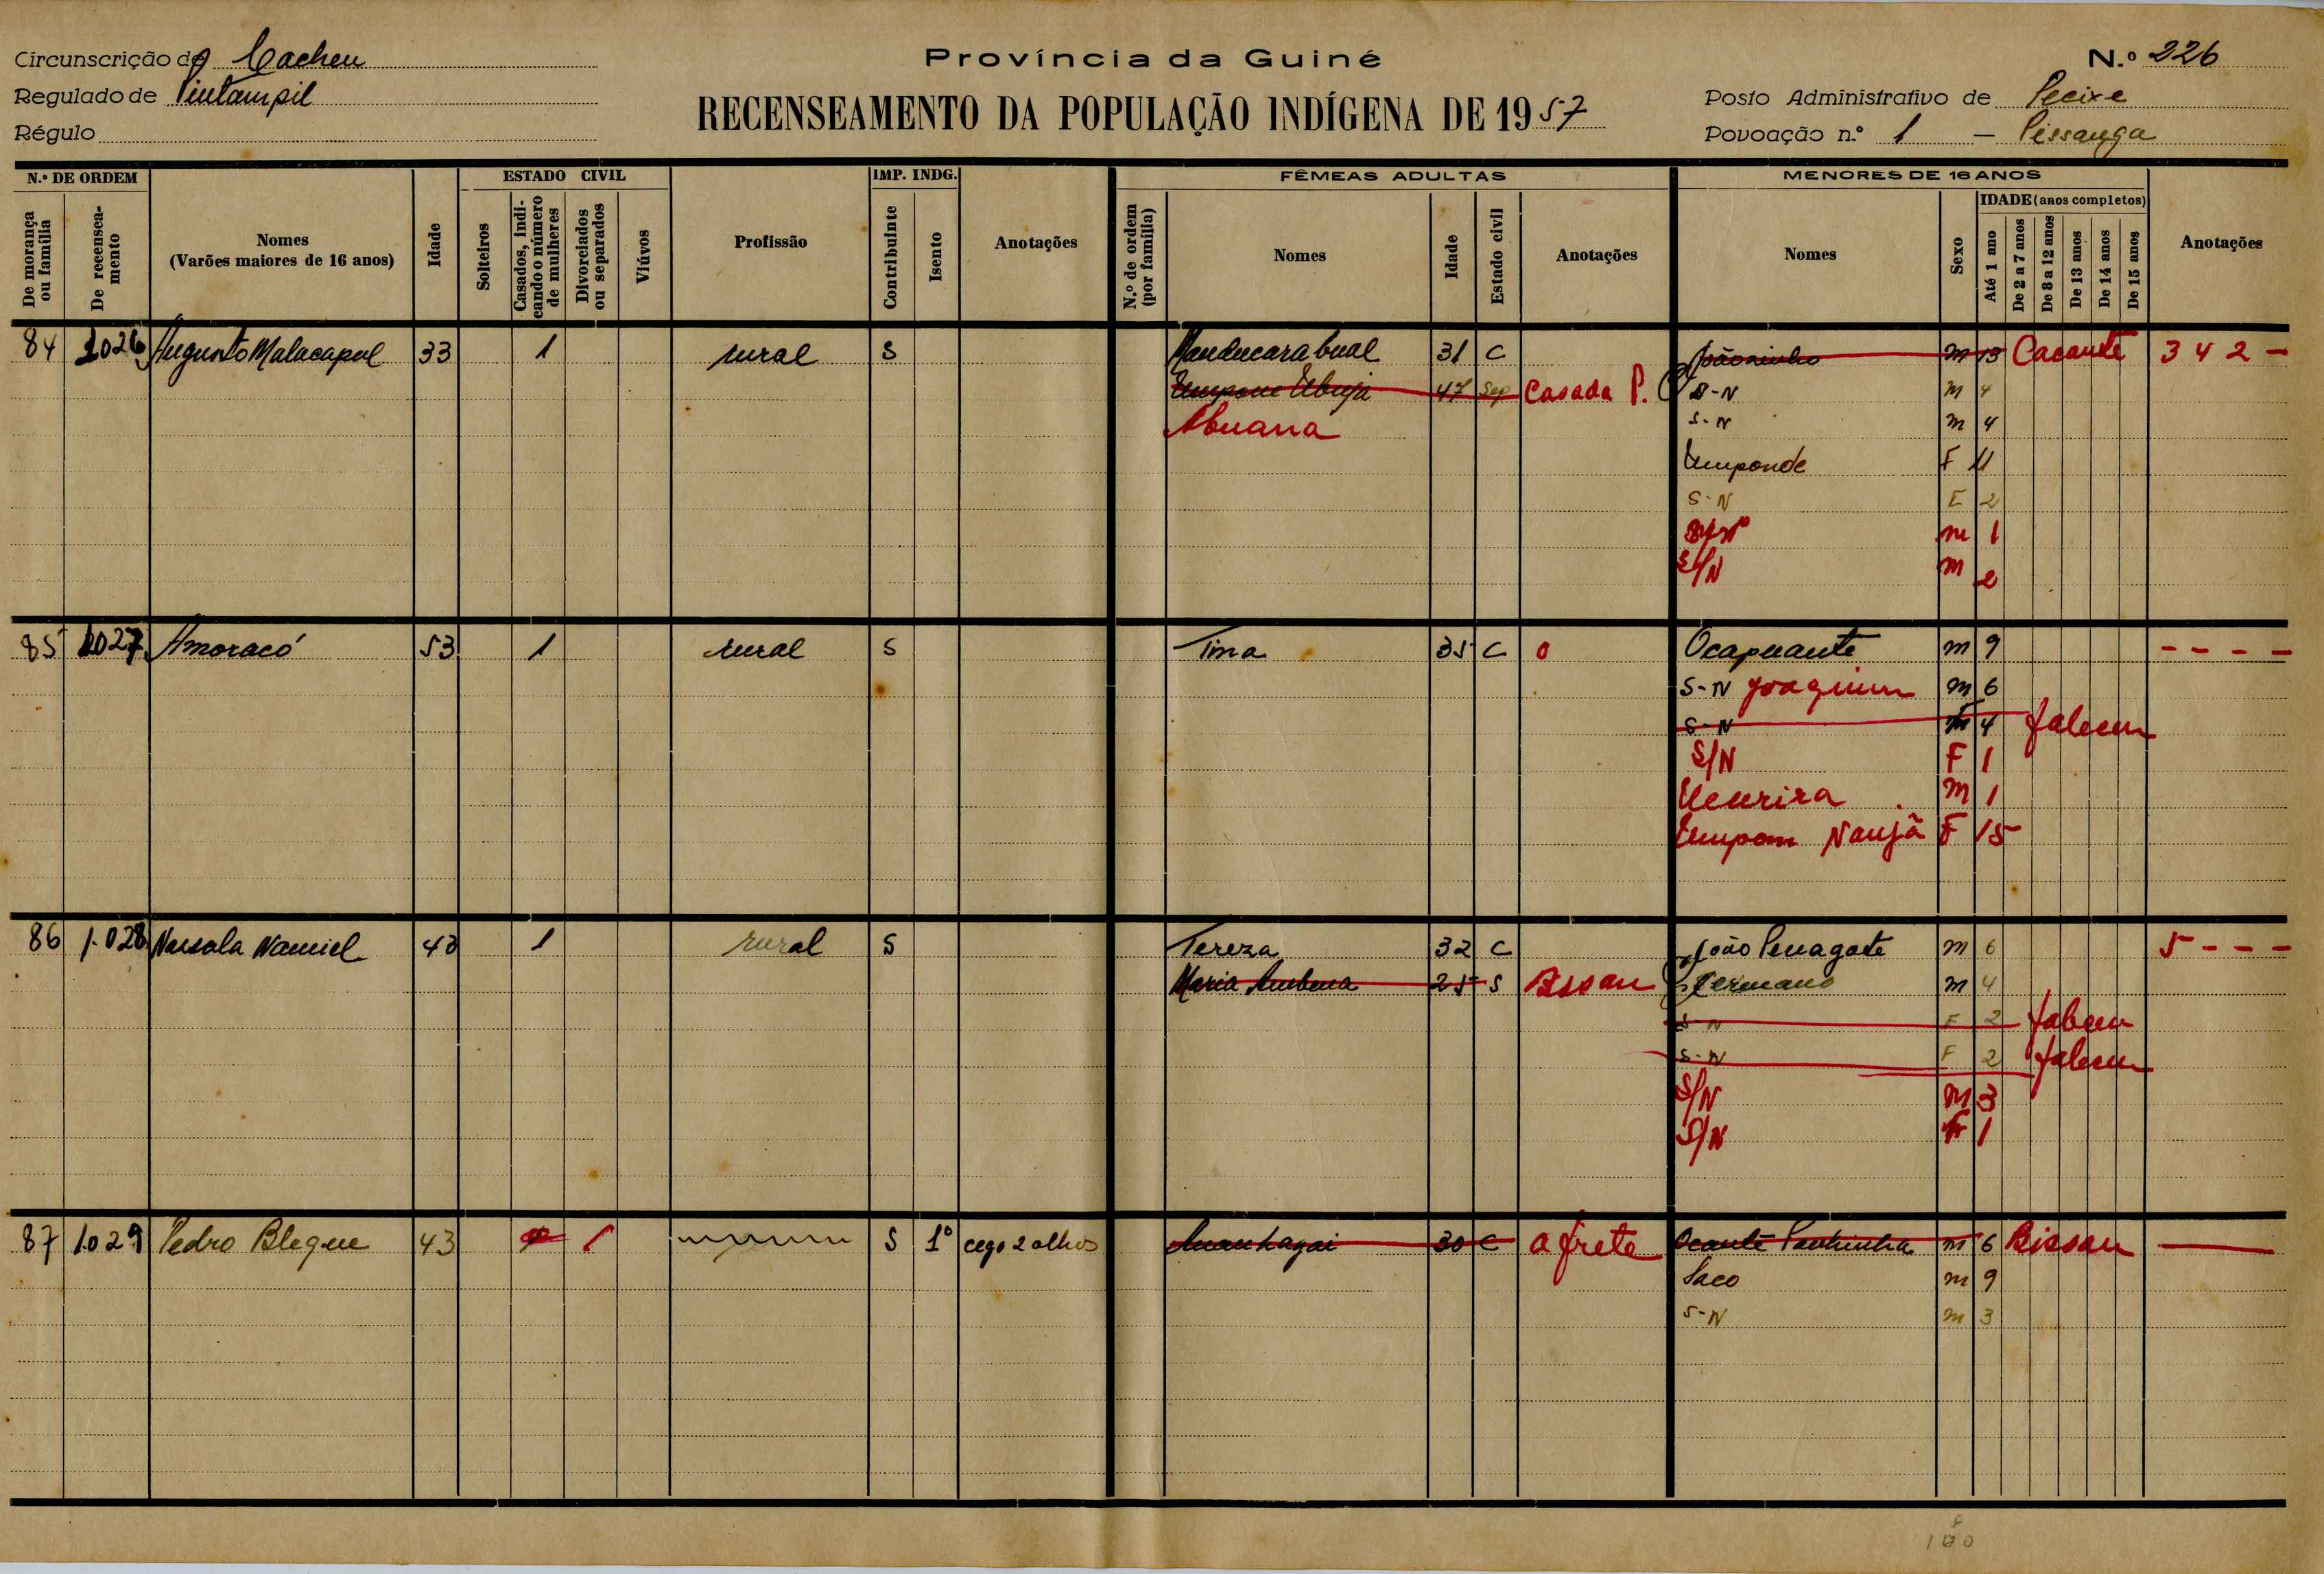 Circunscrição de Cacheu
Regulado de Pintampil
Régulo
Província da Guiné
RECENSEAMENTO DA POPULAÇÃO INDÍGENA DE 1957
N.º 226
Posto Administrativo de Pecixe
Povoação n.º 1 — Pissanga
N.º DE ORDEM
De morança ou família
De recenseamento
Nomes
(Varões maiores de 16 anos)
Idade
ESTADO CIVIL
Solteiros
Casados, indicando o número de mulheres
Divorciados ou separados
Viúvos
Profissão
IMP. INDG.
Contribuinte
Isento
Anotações
FÊMEAS ADULTAS
N.º de ordem (por família)
Nomes
Idade
Estado civil
Anotações
MENORES DE 16 ANOS
Nomes
Sexo
IDADE (anos completos)
Até 1 ano
De 2 a 7 anos
De 8 a 12 anos
De 13 anos
De 14 anos
De 15 anos
Anotações
84 1026 Augusto Malacapul 33 1 rural S Manducarabual 31 C Joãozinho m 13 Cacante 3 4 2 -
47 Sep Casada P. S-N m 4
Abuana S-N m 4
Umponde F 11
S-N F 2
S/N m 1
S/N m 2
85 1027 Amoracó 53 1 rural S Tina 35 C 0 Ocapuante m 9 - - - -
S-N Joaquim m 6
S-N 4 faleceu
S/N F 1
m 1
Naujã F 15
86 1.028 Nausola Namiel 43 1 rural S Tereza 32 C João Penagate m 6 5 - - -
Maria Ambena 25 S Bissau Germano m 4
S-N F 2 faleceu
S-N F 2 faleceu
S/N m 3
S/N F 1
87 1.029 Pedro Blegue 43 1 S 1º cego 2 olhos 30 C a frete Ocante m 6 Bissau
Saco m 9
S-N m 3